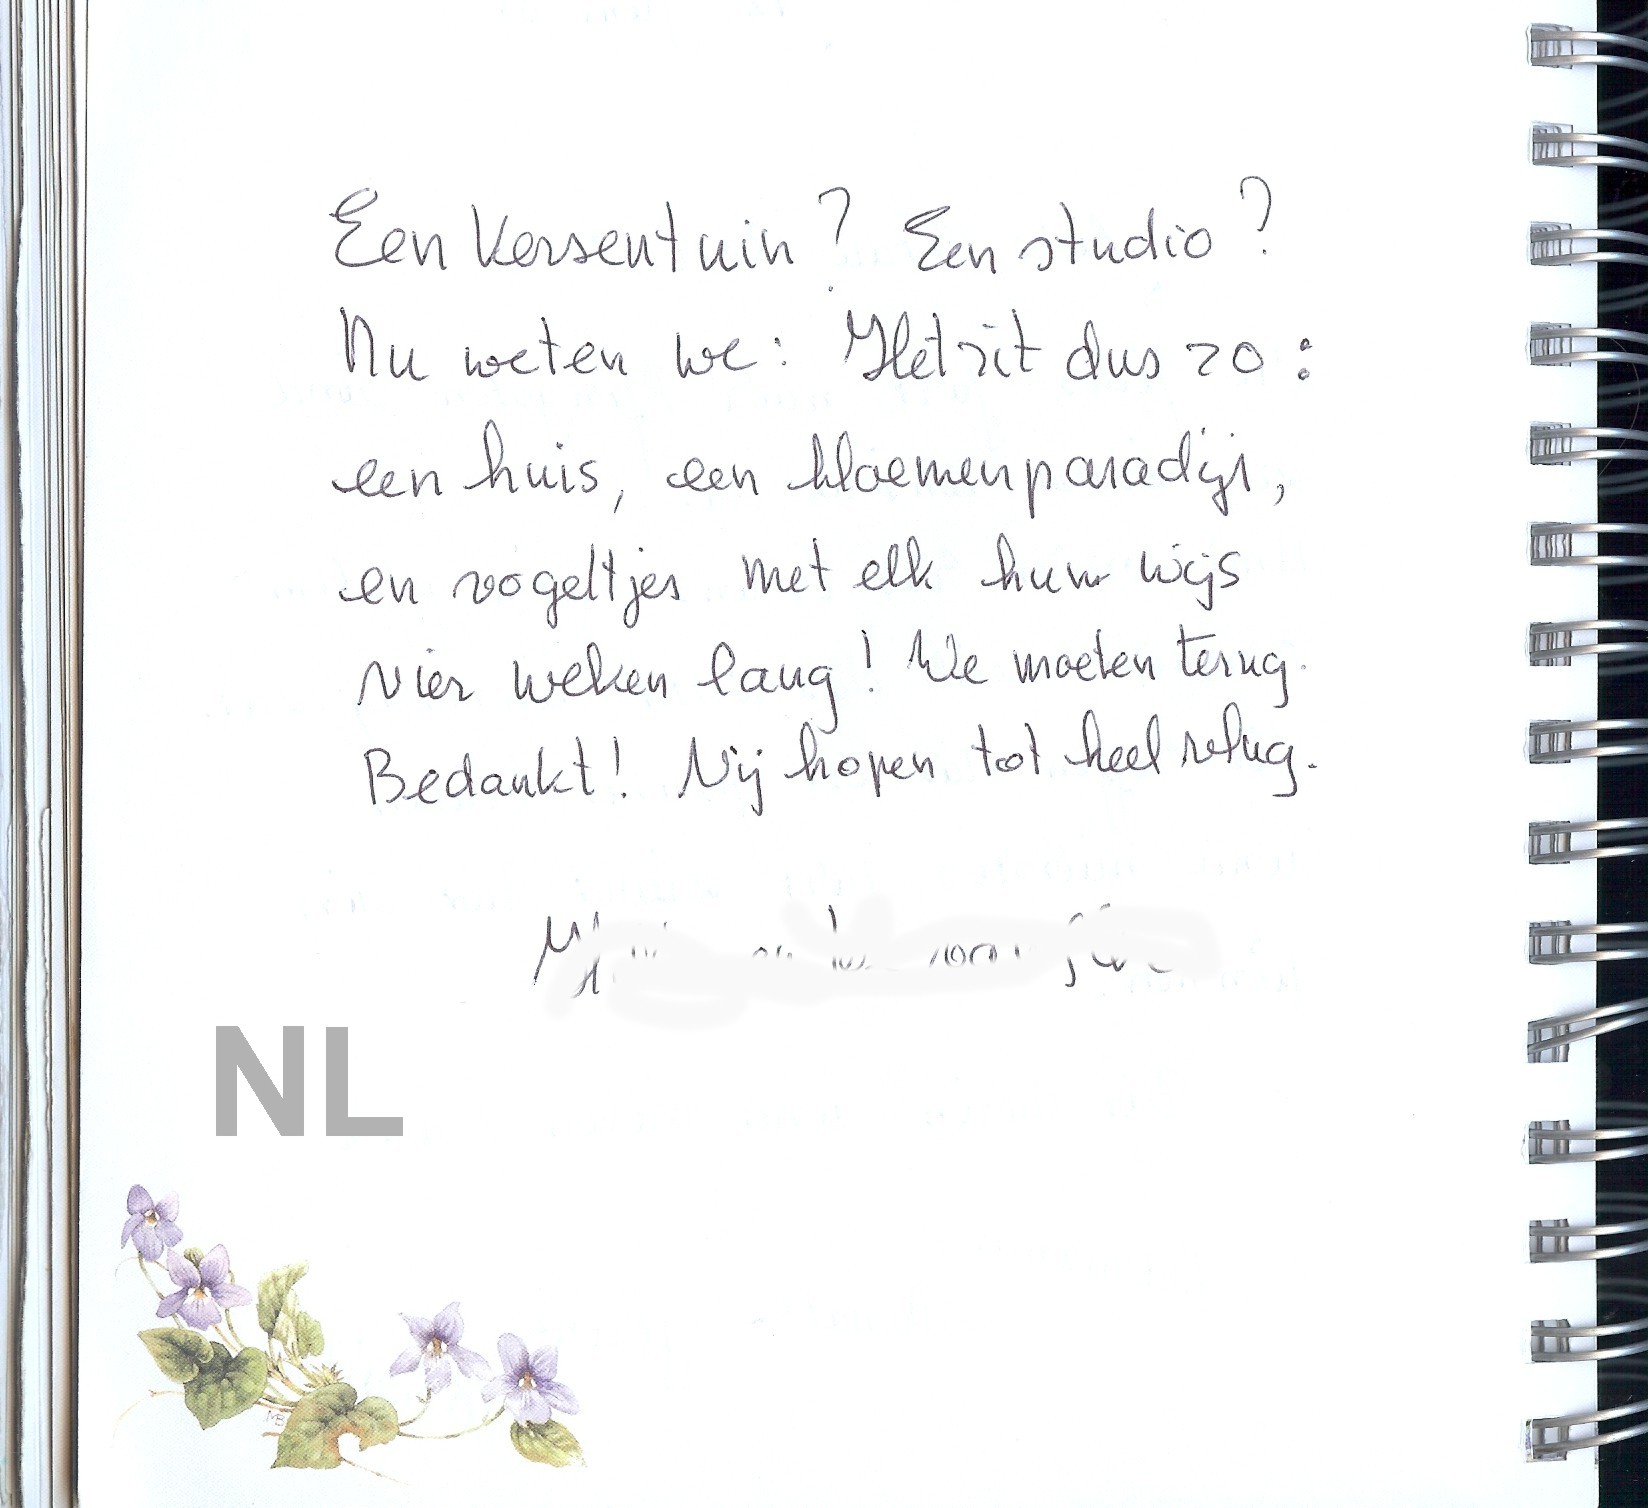 Een Kersentuin? Een studio?
Nu weten we: Het zit dus zo:
een huis, een bloemenparadijs,
en vogeltjes met elk hun wijs
vier weken lang! We moeten terug.
Bedankt! Wij hopen tot heel vlug.
NL
MB